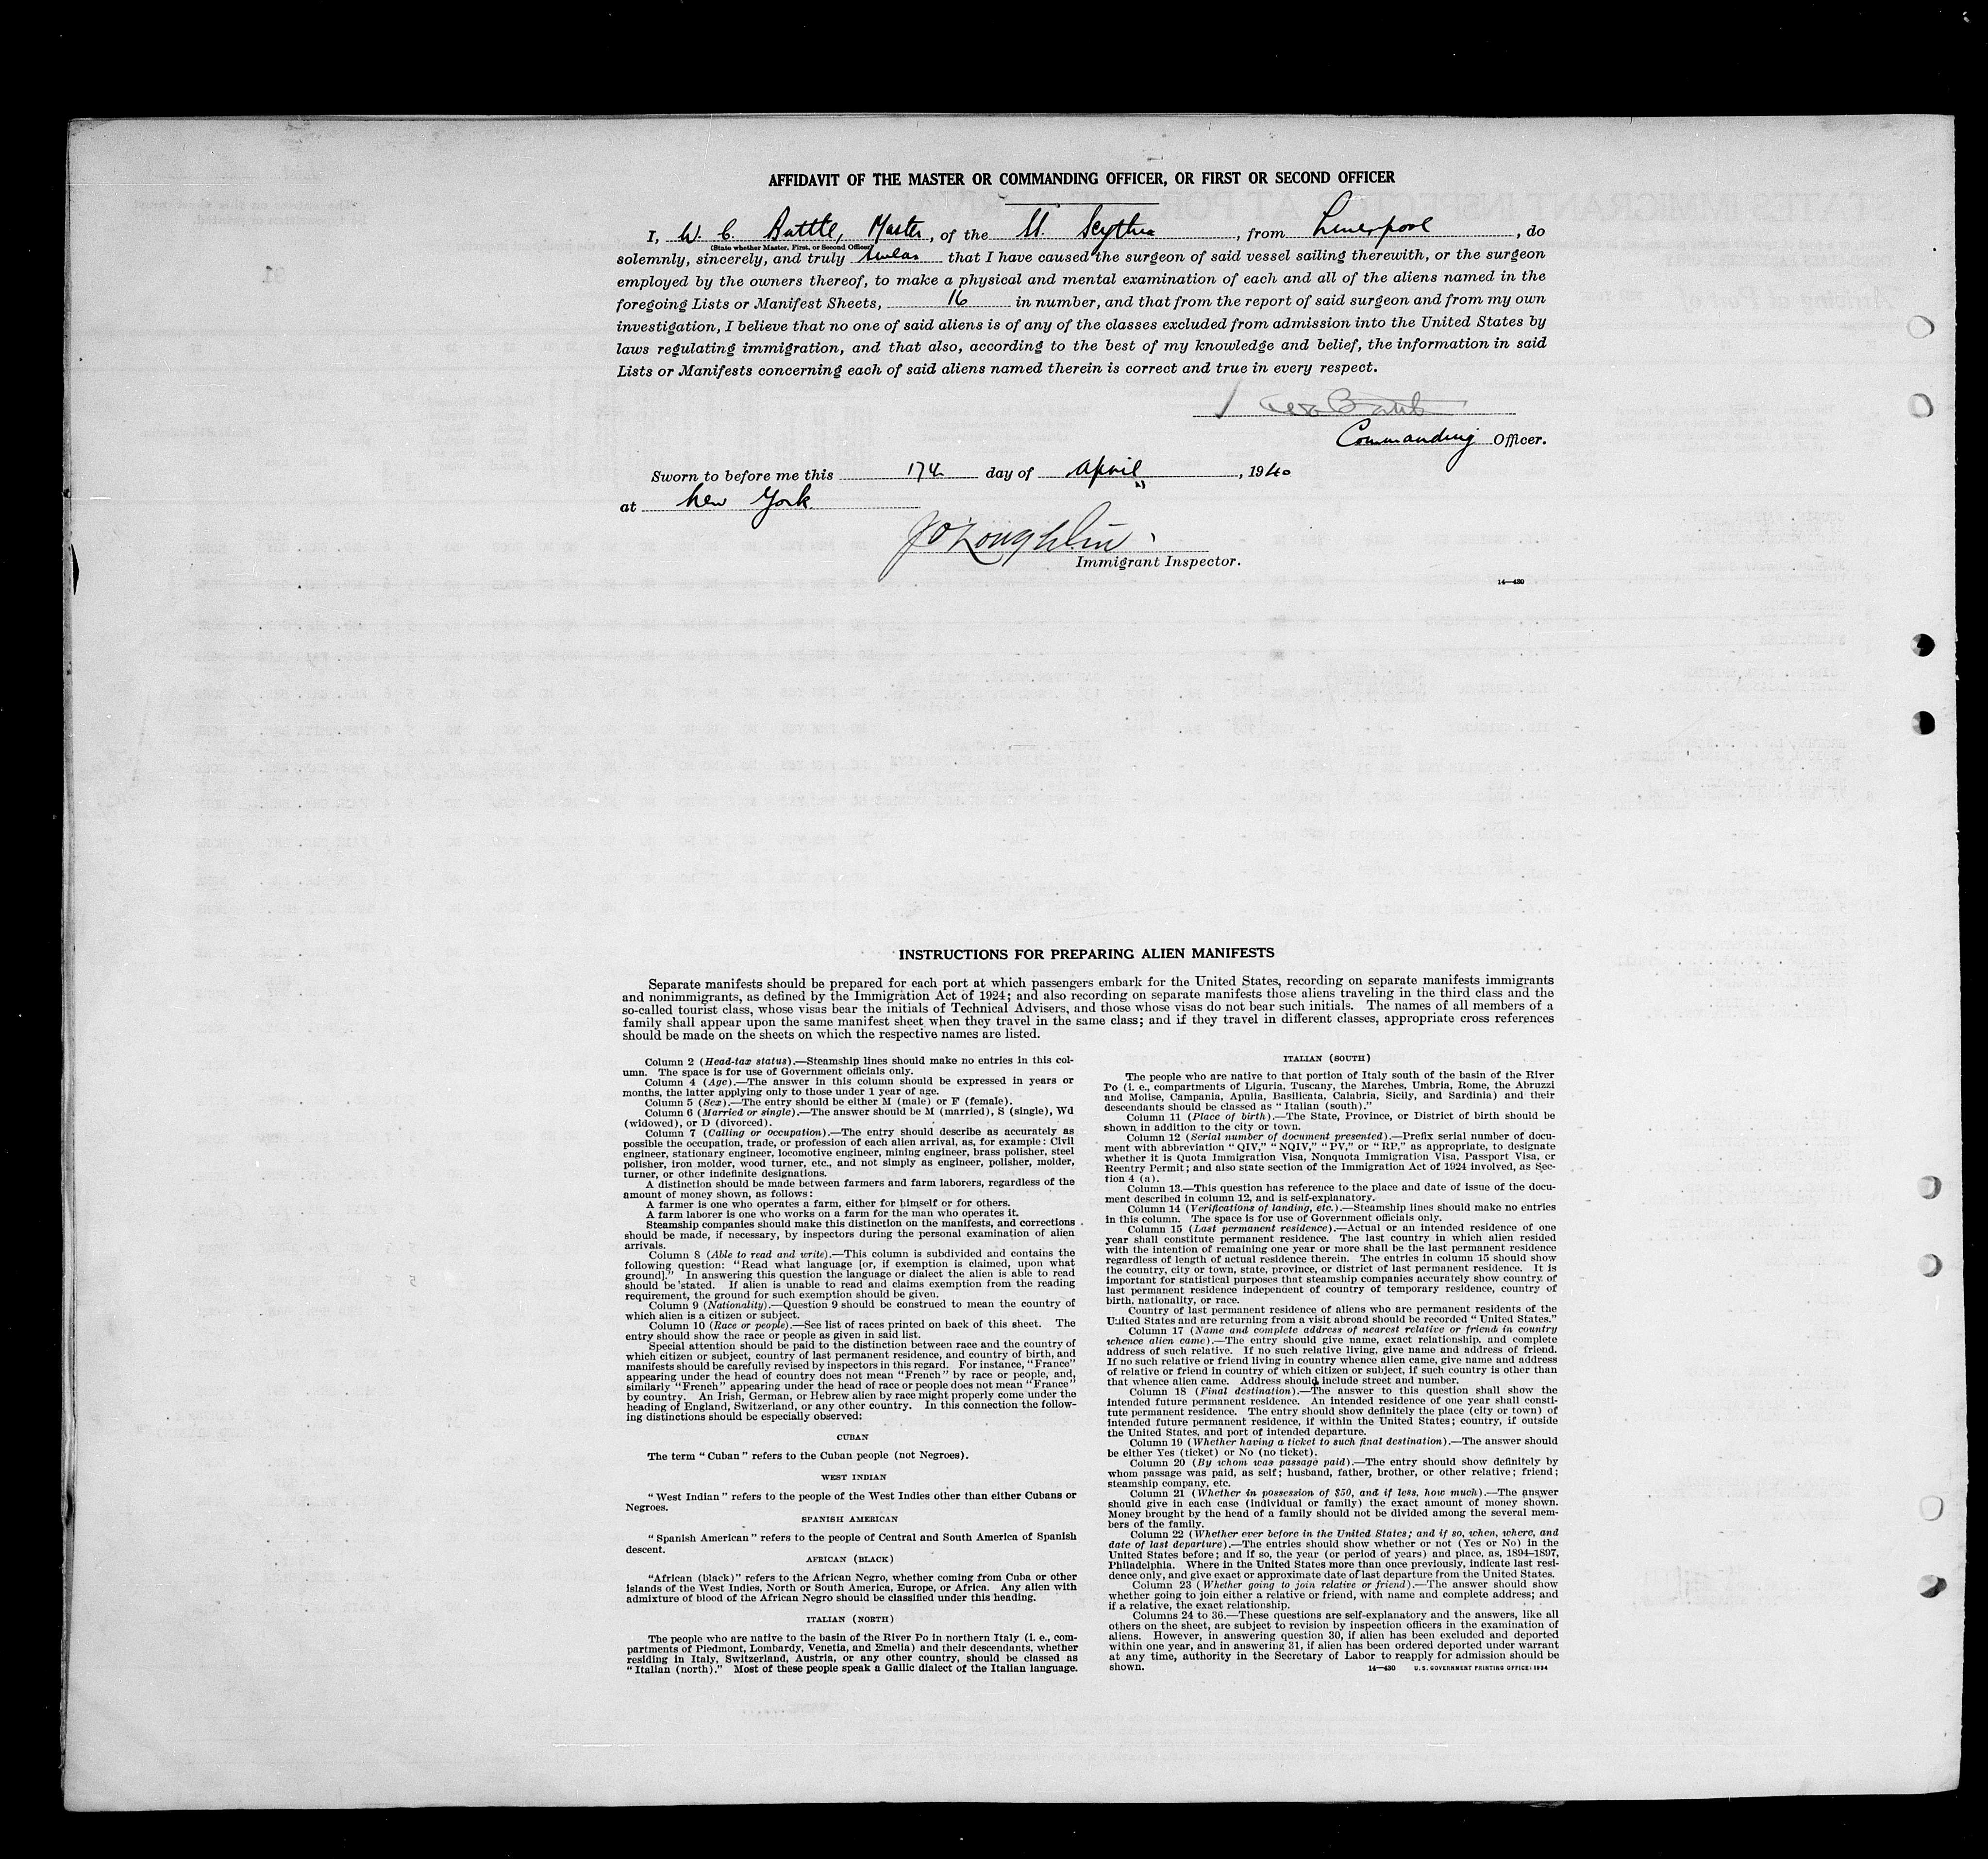 AFFIDAVIT OF THE MASTER OR COMMANDING OFFICER, OR FIRST OR SECOND OFFICER
I, W. C. Battle, Master, of the SS. Scythia, from Liverpool, do
(State whether Master, First, or Second Officer)
solemnly, sincerely, and truly swear that I have caused the surgeon of said vessel sailing therewith, or the surgeon
employed by the owners thereof, to make a physical and mental examination of each and all of the aliens named in the
foregoing Lists or Manifest Sheets, 16 in number, and that from the report of said surgeon and from my own
investigation, I believe that no one of said aliens is of any of the classes excluded from admission into the United States by
laws regulating immigration, and that also, according to the best of my knowledge and belief, the information in said
Lists or Manifests concerning each of said aliens named therein is correct and true in every respect.
Commanding Officer.
Sworn to before me this 17th day of April, 1940
at New York
J O'Loughlin
Immigrant Inspector.
14—430
INSTRUCTIONS FOR PREPARING ALIEN MANIFESTS
Separate manifests should be prepared for each port at which passengers embark for the United States, recording on separate manifests immigrants
and nonimmigrants, as defined by the Immigration Act of 1924; and also recording on separate manifests those aliens traveling in the third class and the
so-called tourist class, whose visas bear the initials of Technical Advisers, and those whose visas do not bear such initials. The names of all members of a
family shall appear upon the same manifest sheet when they travel in the same class; and if they travel in different classes, appropriate cross references
should be made on the sheets on which the respective names are listed.
Column 2 (Head-tax status).—Steamship lines should make no entries in this col-
umn. The space is for use of Government officials only.
Column 4 (Age).—The answer in this column should be expressed in years or
months, the latter applying only to those under 1 year of age.
Column 5 (Sex).—The entry should be either M (male) or F (female).
Column 6 (Married or single).—The answer should be M (married), S (single), Wd
(widowed), or D (divorced).
Column 7 (Calling or occupation).—The entry should describe as accurately as
possible the occupation, trade, or profession of each alien arrival, as, for example: Civil
engineer, stationary engineer, locomotive engineer, mining engineer, brass polisher, steel
polisher, iron molder, wood turner, etc., and not simply as engineer, polisher, molder,
turner, or other indefinite designations.
A distinction should be made between farmers and farm laborers, regardless of the
amount of money shown, as follows:
A farmer is one who operates a farm, either for himself or for others.
A farm laborer is one who works on a farm for the man who operates it.
Steamship companies should make this distinction on the manifests, and corrections
should be made, if necessary, by inspectors during the personal examination of alien
arrivals.
Column 8 (Able to read and write).—This column is subdivided and contains the
following question: "Read what language [or, if exemption is claimed, upon what
ground]." In answering this question the language or dialect the alien is able to read
should be stated. If alien is unable to read and claims exemption from the reading
requirement, the ground for such exemption should be given.
Column 9 (Nationality).—Question 9 should be construed to mean the country of
which alien is a citizen or subject.
Column 10 (Race or people).—See list of races printed on back of this sheet. The
entry should show the race or people as given in said list.
Special attention should be paid to the distinction between race and the country of
which citizen or subject, country of last permanent residence, and country of birth, and
manifests should be carefully revised by inspectors in this regard. For instance, "France"
appearing under the head of country does not mean "French" by race or people, and,
similarly "French" appearing under the head of race or people does not mean "France"
by country. An Irish, German, or Hebrew alien by race might properly come under the
heading of England, Switzerland, or any other country. In this connection the follow-
ing distinctions should be especially observed:
CUBAN
The term "Cuban" refers to the Cuban people (not Negroes).
WEST INDIAN
"West Indian" refers to the people of the West Indies other than either Cubans or
Negroes.
SPANISH AMERICAN
"Spanish American" refers to the people of Central and South America of Spanish
descent.
AFRICAN (BLACK)
"African (black)" refers to the African Negro, whether coming from Cuba or other
islands of the West Indies, North or South America, Europe, or Africa. Any alien with
admixture of blood of the African Negro should be classified under this heading.
ITALIAN (NORTH)
The people who are native to the basin of the River Po in northern Italy (i. e., com-
partments of Piedmont, Lombardy, Venetia, and Emelia) and their descendants, whether
residing in Italy, Switzerland, Austria, or any other country, should be classed as
"Italian (north)." Most of these people speak a Gallic dialect of the Italian language.
ITALIAN (SOUTH)
The people who are native to that portion of Italy south of the basin of the River
Po (i. e., compartments of Liguria, Tuscany, the Marches, Umbria, Rome, the Abruzzi
and Molise, Campania, Apulia, Basilicata, Calabria, Sicily, and Sardinia) and their
descendants should be classed as "Italian (south)."
Column 11 (Place of birth).—The State, Province, or District of birth should be
shown in addition to the city or town.
Column 12 (Serial number of document presented).—Prefix serial number of docu-
ment with abbreviation "QIV," "NQIV," "PV," or "RP," as appropriate, to designate
whether it is Quota Immigration Visa, Nonquota Immigration Visa, Passport Visa, or
Reentry Permit; and also state section of the Immigration Act of 1924 involved, as Sec-
tion 4 (a).
Column 13.—This question has reference to the place and date of issue of the docu-
ment described in column 12, and is self-explanatory.
Column 14 (Verifications of landing, etc.).—Steamship lines should make no entries
in this column. The space is for use of Government officials only.
Column 15 (Last permanent residence).—Actual or an intended residence of one
year shall constitute permanent residence. The last country in which alien resided
with the intention of remaining one year or more shall be the last permanent residence
regardless of length of actual residence therein. The entries in column 15 should show
the country, city or town, state, province, or district of last permanent residence. It is
important for statistical purposes that steamship companies accurately show country of
last permanent residence independent of country of temporary residence, country of
birth, nationality, or race.
Country of last permanent residence of aliens who are permanent residents of the
United States and are returning from a visit abroad should be recorded "United States."
Column 17 (Name and complete address of nearest relative or friend in country
whence alien came).—The entry should give name, exact relationship, and complete
address of such relative. If no such relative living, give name and address of friend.
If no such relative or friend living in country whence alien came, give name and address
of relative or friend in country of which citizen or subject, if such country is other than
that whence alien came. Address should include street and number.
Column 18 (Final destination).—The answer to this question shall show the
intended future permanent residence. An intended residence of one year shall consti-
tute permanent residence. The entry should show definitely the place (city or town) of
intended future permanent residence, if within the United States; country, if outside
the United States, and port of intended departure.
Column 19 (Whether having a ticket to such final destination).—The answer should
be either Yes (ticket) or No (no ticket).
Column 20 (By whom was passage paid).—The entry should show definitely by
whom passage was paid, as self; husband, father, brother, or other relative; friend;
steamship company, etc.
Column 21 (Whether in possession of $50, and if less, how much).—The answer
should give in each case (individual or family) the exact amount of money shown.
Money brought by the head of a family should not be divided among the several mem-
bers of the family.
Column 22 (Whether ever before in the United States; and if so, when, where, and
date of last departure).—The entries should show whether or not (Yes or No) in the
United States before; and if so, the year (or period of years) and place, as, 1894–1897,
Philadelphia. Where in the United States more than once previously, indicate last resi-
dence only, and give exact or approximate date of last departure from the United States.
Column 23 (Whether going to join relative or friend).—The answer should show
whether going to join either a relative or friend, with name and complete address; and
if a relative, the exact relationship.
Columns 24 to 36.—These questions are self-explanatory and the answers, like all
others on the sheet, are subject to revision by inspection officers in the examination of
aliens. However, in answering question 30, if alien has been excluded and deported
within one year, and in answering 31, if alien has been ordered deported under warrant
at any time, authority in the Secretary of Labor to reapply for admission should be
shown.
14—430 U. S. GOVERNMENT PRINTING OFFICE: 1934